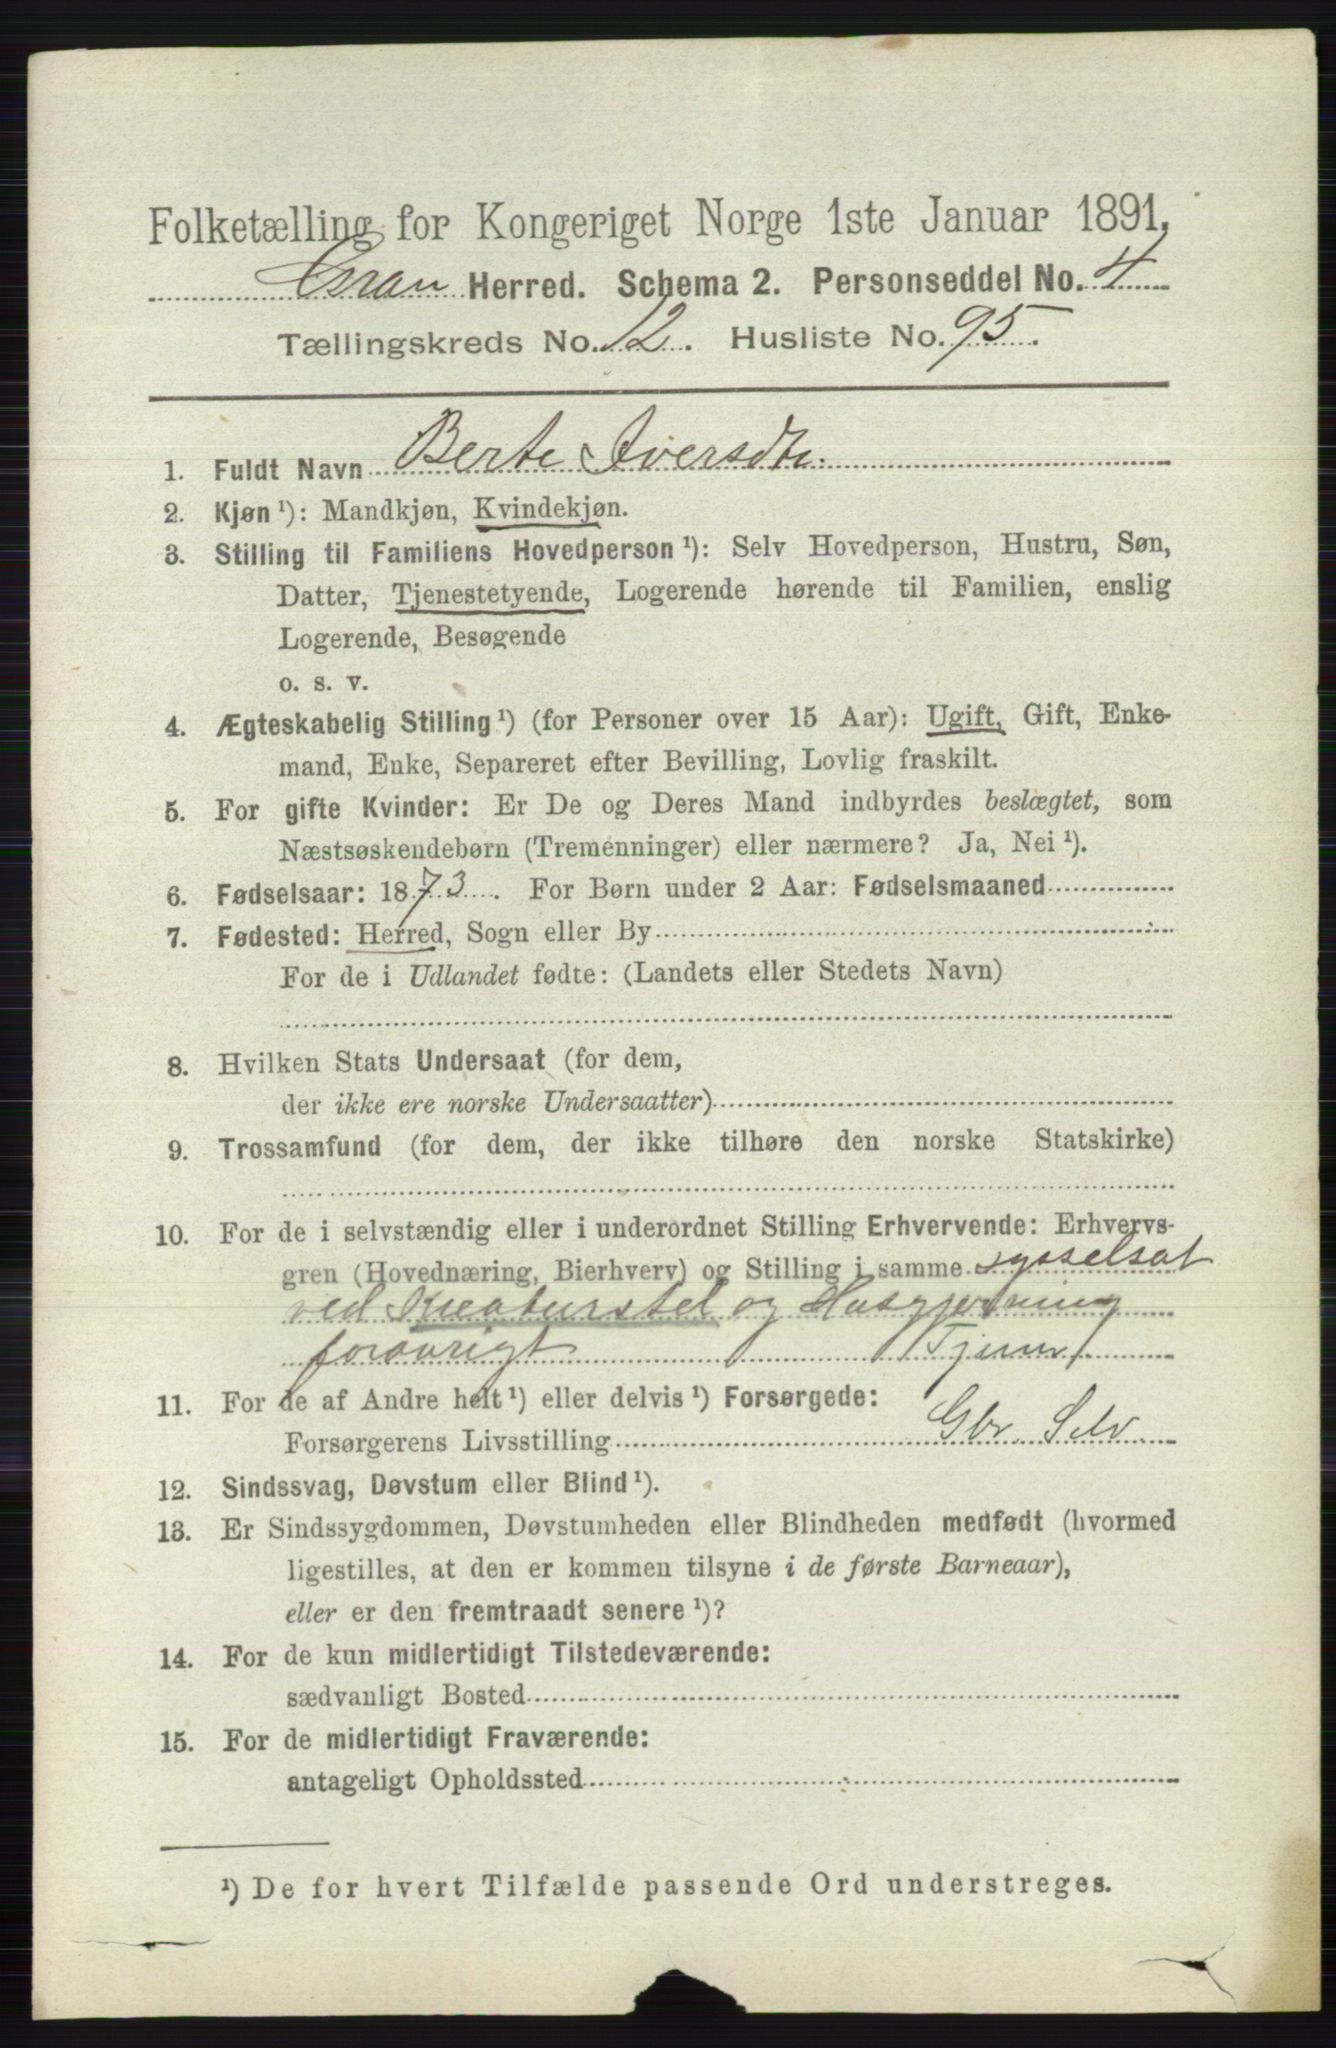 Folketælling for Kongeriget Norge 1ste Januar 1891.
Gran Herred. Schema 2. Personseddel No. 4
Tællingskreds No. 12. Husliste No. 95.
1. Fuldt Navn Berte Iversdtr.
2. Kjøn ¹): Mandkjøn, Kvindekjøn.
3. Stilling til Familiens Hovedperson ¹): Selv Hovedperson, Hustru, Søn,
Datter, Tjenestetyende, Logerende hørende til Familien, enslig
Logerende, Besøgende
o. s. v.
4. Ægteskabelig Stilling ¹) (for Personer over 15 Aar): Ugift, Gift, Enke-
mand, Enke, Separeret efter Bevilling, Lovlig fraskilt.
5. For gifte Kvinder: Er De og Deres Mand indbyrdes beslægtet, som
Næstsøskendebørn (Tremenninger) eller nærmere? Ja, Nei ¹).
6. Fødselsaar: 1873. For Børn under 2 Aar: Fødselsmaaned
7. Fødested: Herred, Sogn eller By
For de i Udlandet fødte: (Landets eller Stedets Navn)
8. Hvilken Stats Undersaat (for dem,
der ikke ere norske Undersaatter)
9. Trossamfund (for dem, der ikke tilhøre den norske Statskirke)
10. For de i selvstændig eller i underordnet Stilling Erhvervende: Erhvervs-
gren (Hovednæring, Bierhverv) og Stilling i samme sysselsat
ved Kreaturstel og Husgjerning
forøvrigt
11. For de af Andre helt ¹) eller delvis ¹) Forsørgede:
Forsørgerens Livsstilling Gbr. Selv.
12. Sindssvag, Døvstum eller Blind ¹).
13. Er Sindssygdommen, Døvstumheden eller Blindheden medfødt (hvormed
ligestilles, at den er kommen tilsyne i de første Barneaar),
eller er den fremtraadt senere ¹)?
14. For de kun midlertidigt Tilstedeværende:
sædvanligt Bosted
15. For de midlertidigt Fraværende:
antageligt Opholdssted
¹) De for hvert Tilfælde passende Ord understreges.